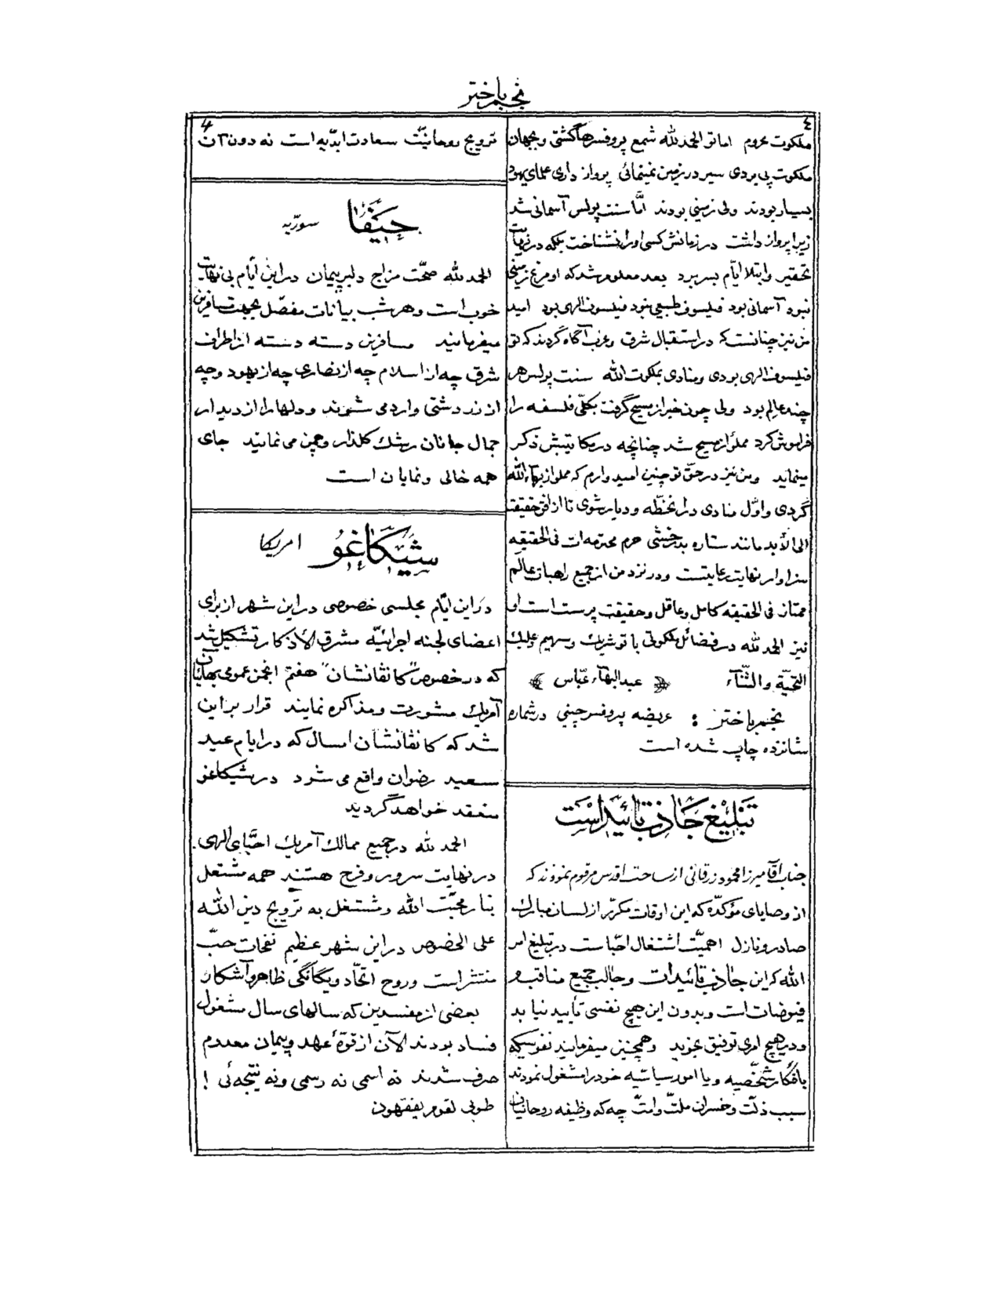 نجم باختر
٤
ملکوت محروم اما تو الحمد لله شمع پروفسرها گشتی و بجهان
ملکوت پی بردی سیر در زمین ننیمائی پرواز داری علمای یهود
بسیار بودند ولی زمینی بودند امّا سنت پولس آسمانی شد
زیرا پرواز داشت در زمانش کسی او را نشناخت بلکه در نهایت
تحقیر و ابتلا ایّام بسر برد بعد معلوم شد که او مرغ زمینی
نبود آسمانی بود فیلسوف طبیعی نبود فیلسوف الهی بود امید
من نیز چنانست که در استقبال شرق و غرب آگاه گردند که تو
فیلسوف الهی بودی و منادی بملکوت الله سنت پولس هر
چند عالم بود ولی چون خبر از مسیح گرفت بکلّی فلسفه را
فراموش کرد مملو از مسیح شد چنانچه در مکاتیبش ذکر
مینماید و من نیز در حقّ تو چنین امیدوارم که مملو از بهاء الله
گردی و اوّل منادی در آن خطّه و دیار شوی تا از افق حقیقت
الی الأبد مانند ستاره بدرخشی حرم محترمه ات فی الحقیقه
سزاوار نهایت عنایتست و در نزد من از جمیع راهبات عالم
ممتاز فی الحقیقه کامل و عاقل و حقیقت پرست است او
نیز الحمد لله در فضائل ملکوتی با تو شریک و سهیم و علیک
التحیّة والثّنآء ﴿ عبدالبهآء عبّاس ﴾
نجم باختر : عریضه پروفسر چینی در شماره
شانزده چاپ شده است
تبلیغ جاذب تائید است
جناب آقا میرزا محمود زرقانی از ساحت اقدس مرقوم نمودند که
از وصایای مؤکّده که این اوقات مکرّر از لسان مبارک
صادر و نازل اهمیّت اشتغال احبّاست در تبلیغ امر
الله که این جاذب تائیدات و جالب جمیع مناقب و
فیوضات است و بدون این هیچ نفسی تأیید نیابد
و در هیچ امری توفیق نجوید و همچنین میفرمایند نفوسیکه
بافکار شخصیه و یا امور سیاسیه خود را مشغول نمودند
سبب ذلّت و خسران ملّت و امّت چه که وظیفه روحانیان
4
ترویج روحانیّت سعادت ابدیه است نه دون آن
حیفا سوریه
الحمد لله صحّت مزاج دلبر پیمان در این ایام بی نهایت
خوب است و هر شب بیانات مفصّل بجهت مسافرین
میفرمایند مسافرین دسته دسته از اطراف
شرق چه از اسلام چه از نصاری چه از یهود و چه
از زردشتی وارد می شوند و دلها را از دیدار
جمال جانان رشک گلذار و چمن می نمایند جای
همه خالی و نمایان است
شیکاغو امریکا
در این ایّام مجلسی خصوصی در این شهر از برای
اعضای لجنه اجرائیّه مشرق الأذکار تشکیل شد
که در خصوص "کانفانشان" هفتم انجمن عمومی بهائیان
آمریک مشورت و مذاکره نمایند قرار بر این
شد که کانفانشان امسال که در ایام عید
سعید رضوان واقع می شود در شیکاغو
منعقد خواهد گردید
الحمد لله در جمیع ممالک آمریک احبّای الهی
در نهایت سرور و فرح هستند همه مشتعل
بنار محبّت الله و مشتغل به ترویج دین الله
علی الخصوص در این شهر عظیم نفحات حبّ
منتشر است و روح اتّحاد و یگانگی ظاهر و آشکار
بعضی از مفسدین که سالهای سال مشغول
فساد بودند الآن از قوّۀ عهد و پیمان معدوم
صرف شدند نه اسمی نه رسمی و نه نتیجه ئی !
طوبی لقوم یفقهون